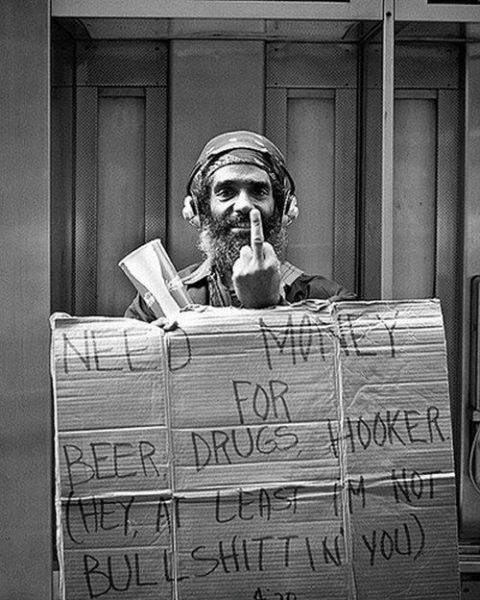 NEED MONEY
FOR
BEER, DRUGS, HOOKER
(HEY, AT LEAST I'M NOT
BULLSHITTIN' YOU)